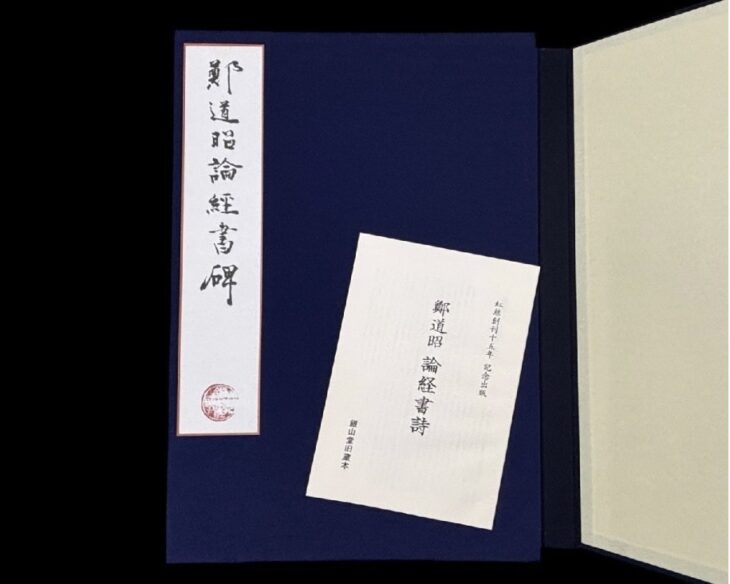 鄭道昭論經書碑
創刊十五年 記念出版
鄭道昭 論経書詩
銀山堂旧蔵本